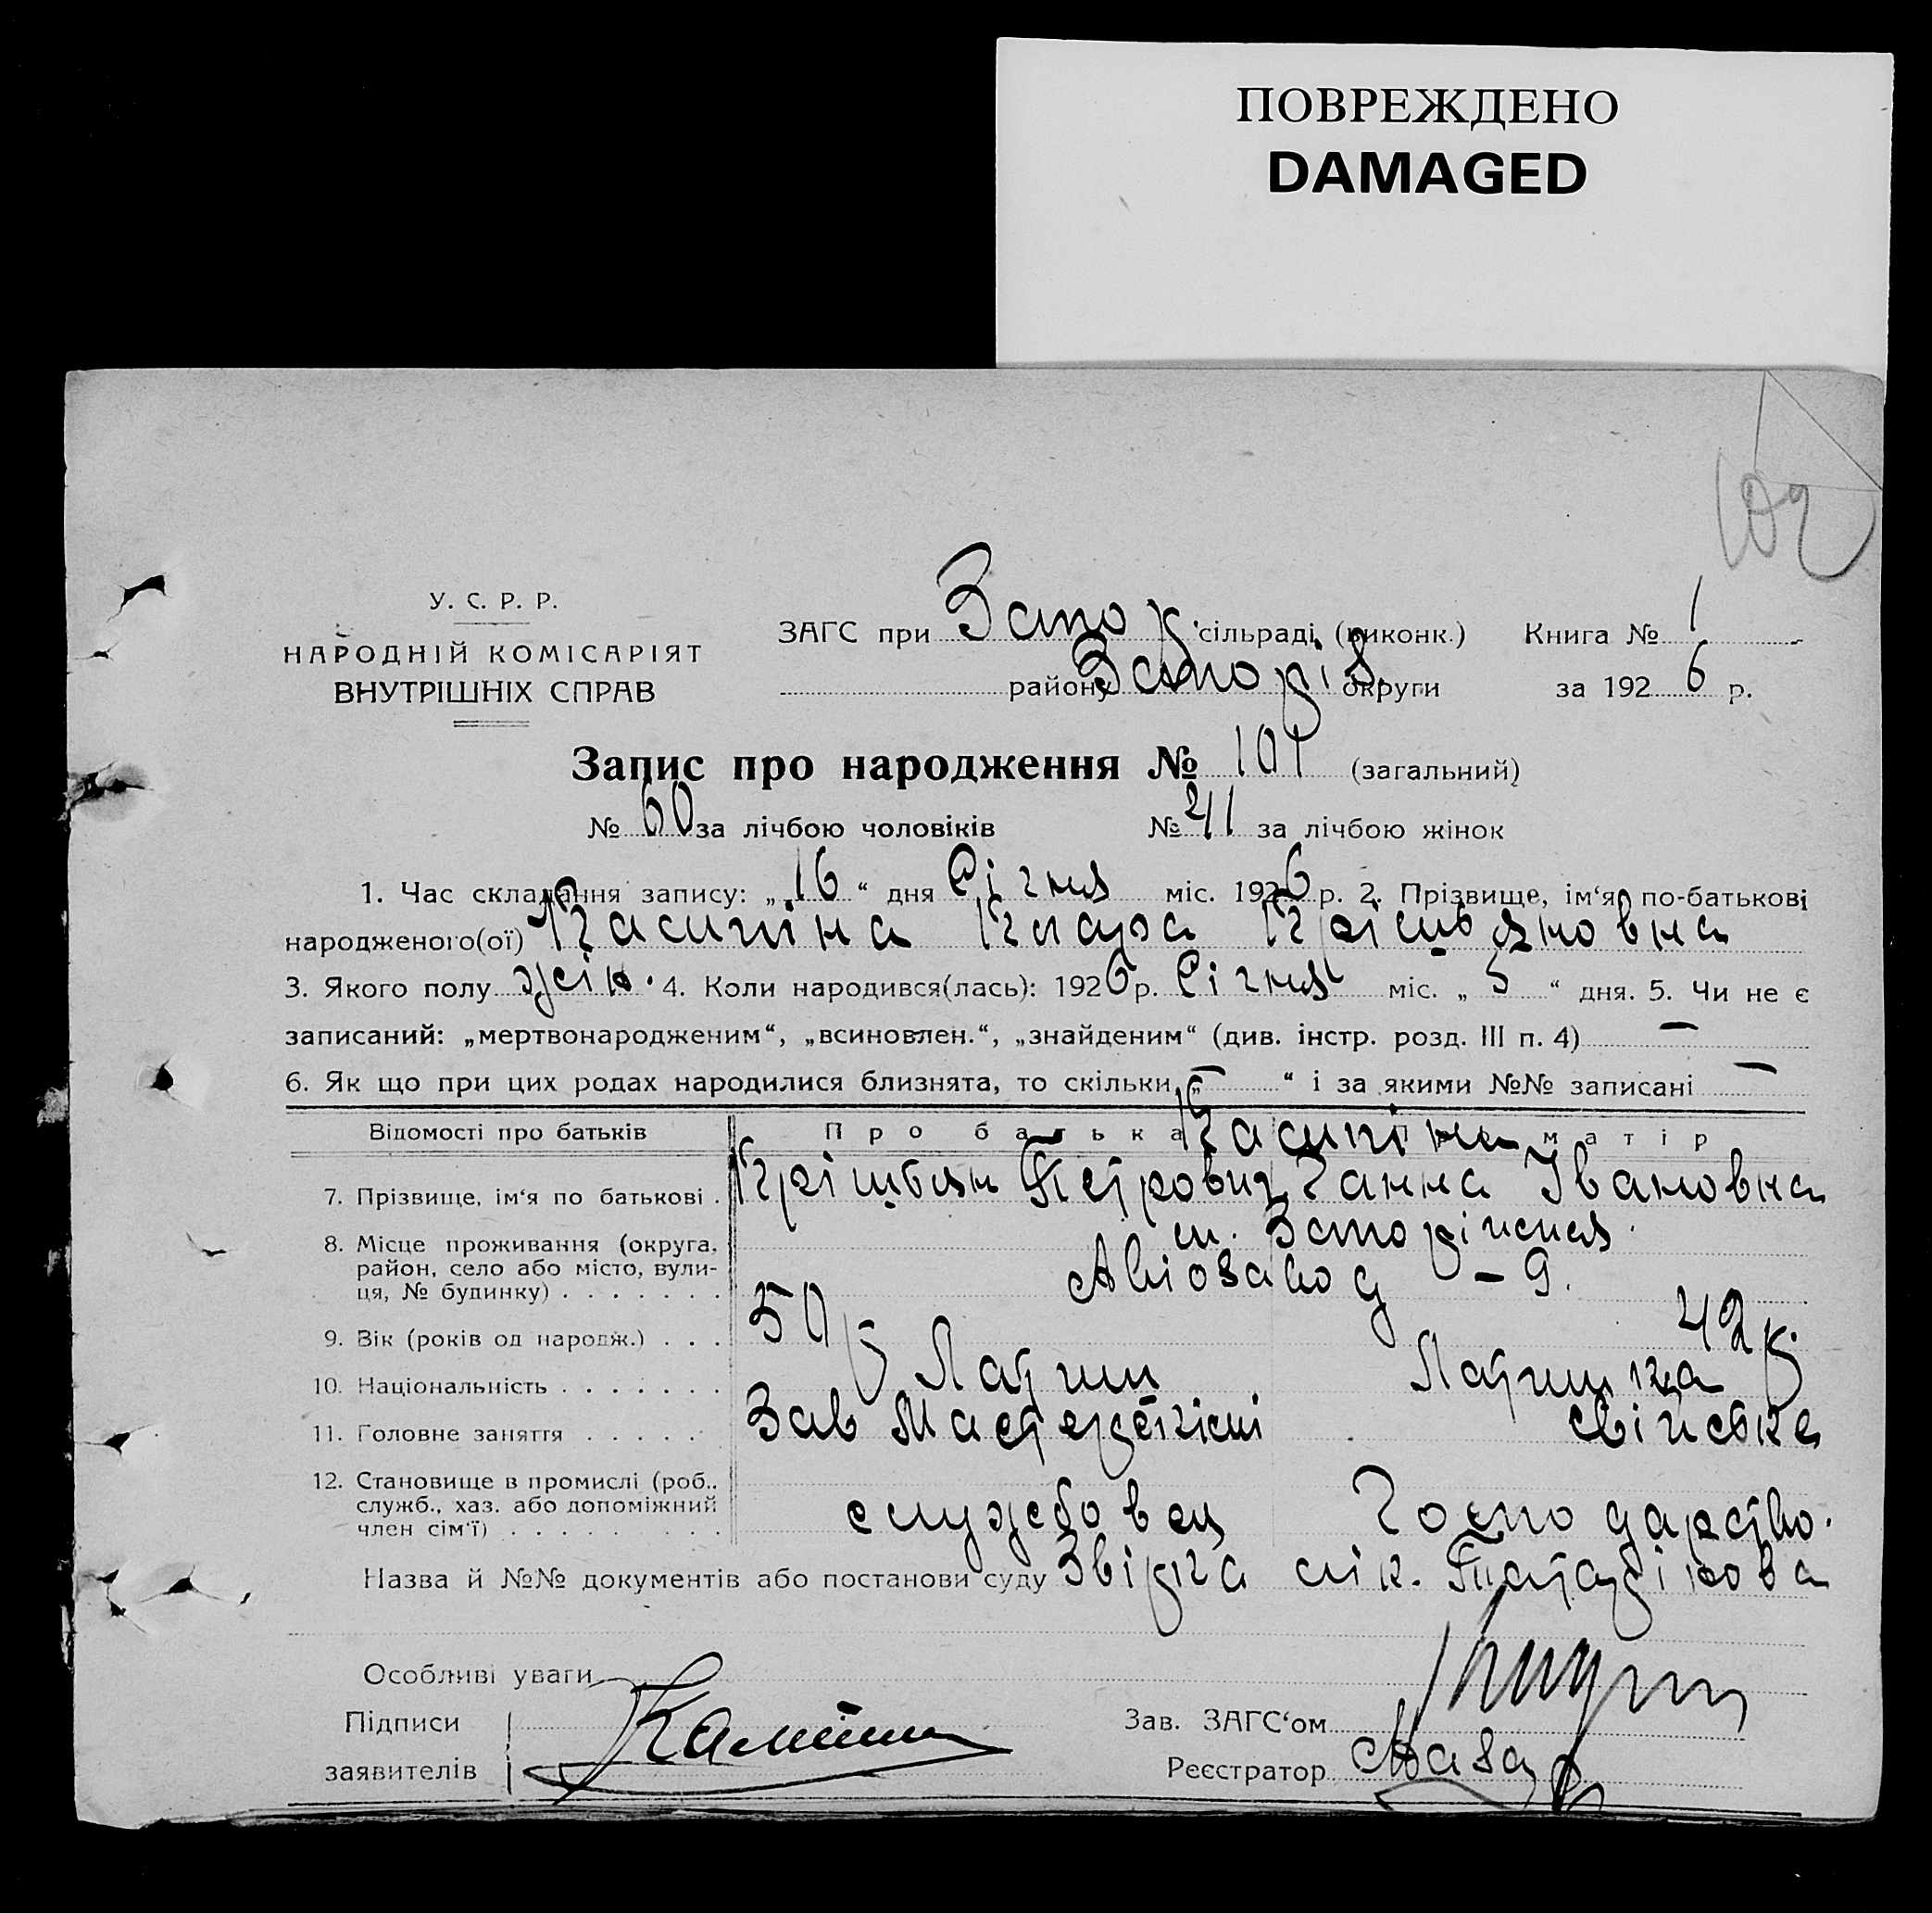 ПОВРЕЖДЕНО
DAMAGED
102
У. С. Р. Р.
НАРОДНІЙ КОМІСАРІЯТ
ВНУТРІШНІХ СПРАВ
ЗАГС при Запор. сільраді (виконк.) Книга № 1
району Запоріз. округи за 1926 р.
Запис про народження № 101 (загальний)
№ 60 за лічбою чоловіків № 41 за лічбою жінок
1. Час складання запису: „16“ дня Січня міс. 1926 р. 2. Прізвище, ім‘я, по-батькові
народженого(ої) Клара
3. Якого полу жін. 4. Коли народився(лась): 1926 р. Січня міс. „5“ дня. 5. Чи не є
записаний: „мертвонародженим“, „всиновлен.“, „знайденим“ (див. інстр. розд. III п. 4) —
6. Як що при цих родах народилися близнята, то скільки „—“ і за якими №№ записані —
Відомості про батьків Про батька матір
7. Прізвище, ім‘я по батькові . Петрович Ганна Івановна
8. Місце проживання (округа, м. Запоріжжя.
район, село або місто, вули- Авіозавод – 9.
ця, № будинку) . . . . . . .
9. Вік (років од народж.) . . . 50 р 42 р.
10. Національність . . . . . . . Латиш Латишка
11. Головне заняття . . . . . Зав
12. Становище в промислі (роб.,
служб., хаз. або допоміжний службовец Господарство.
член сім‘ї) . . . . . . . . .
Назва й №№ документів або постанови суду лік.
Особливі уваги
Підписи
Зав. ЗАГС‘ом
заявителів
Реєстратор